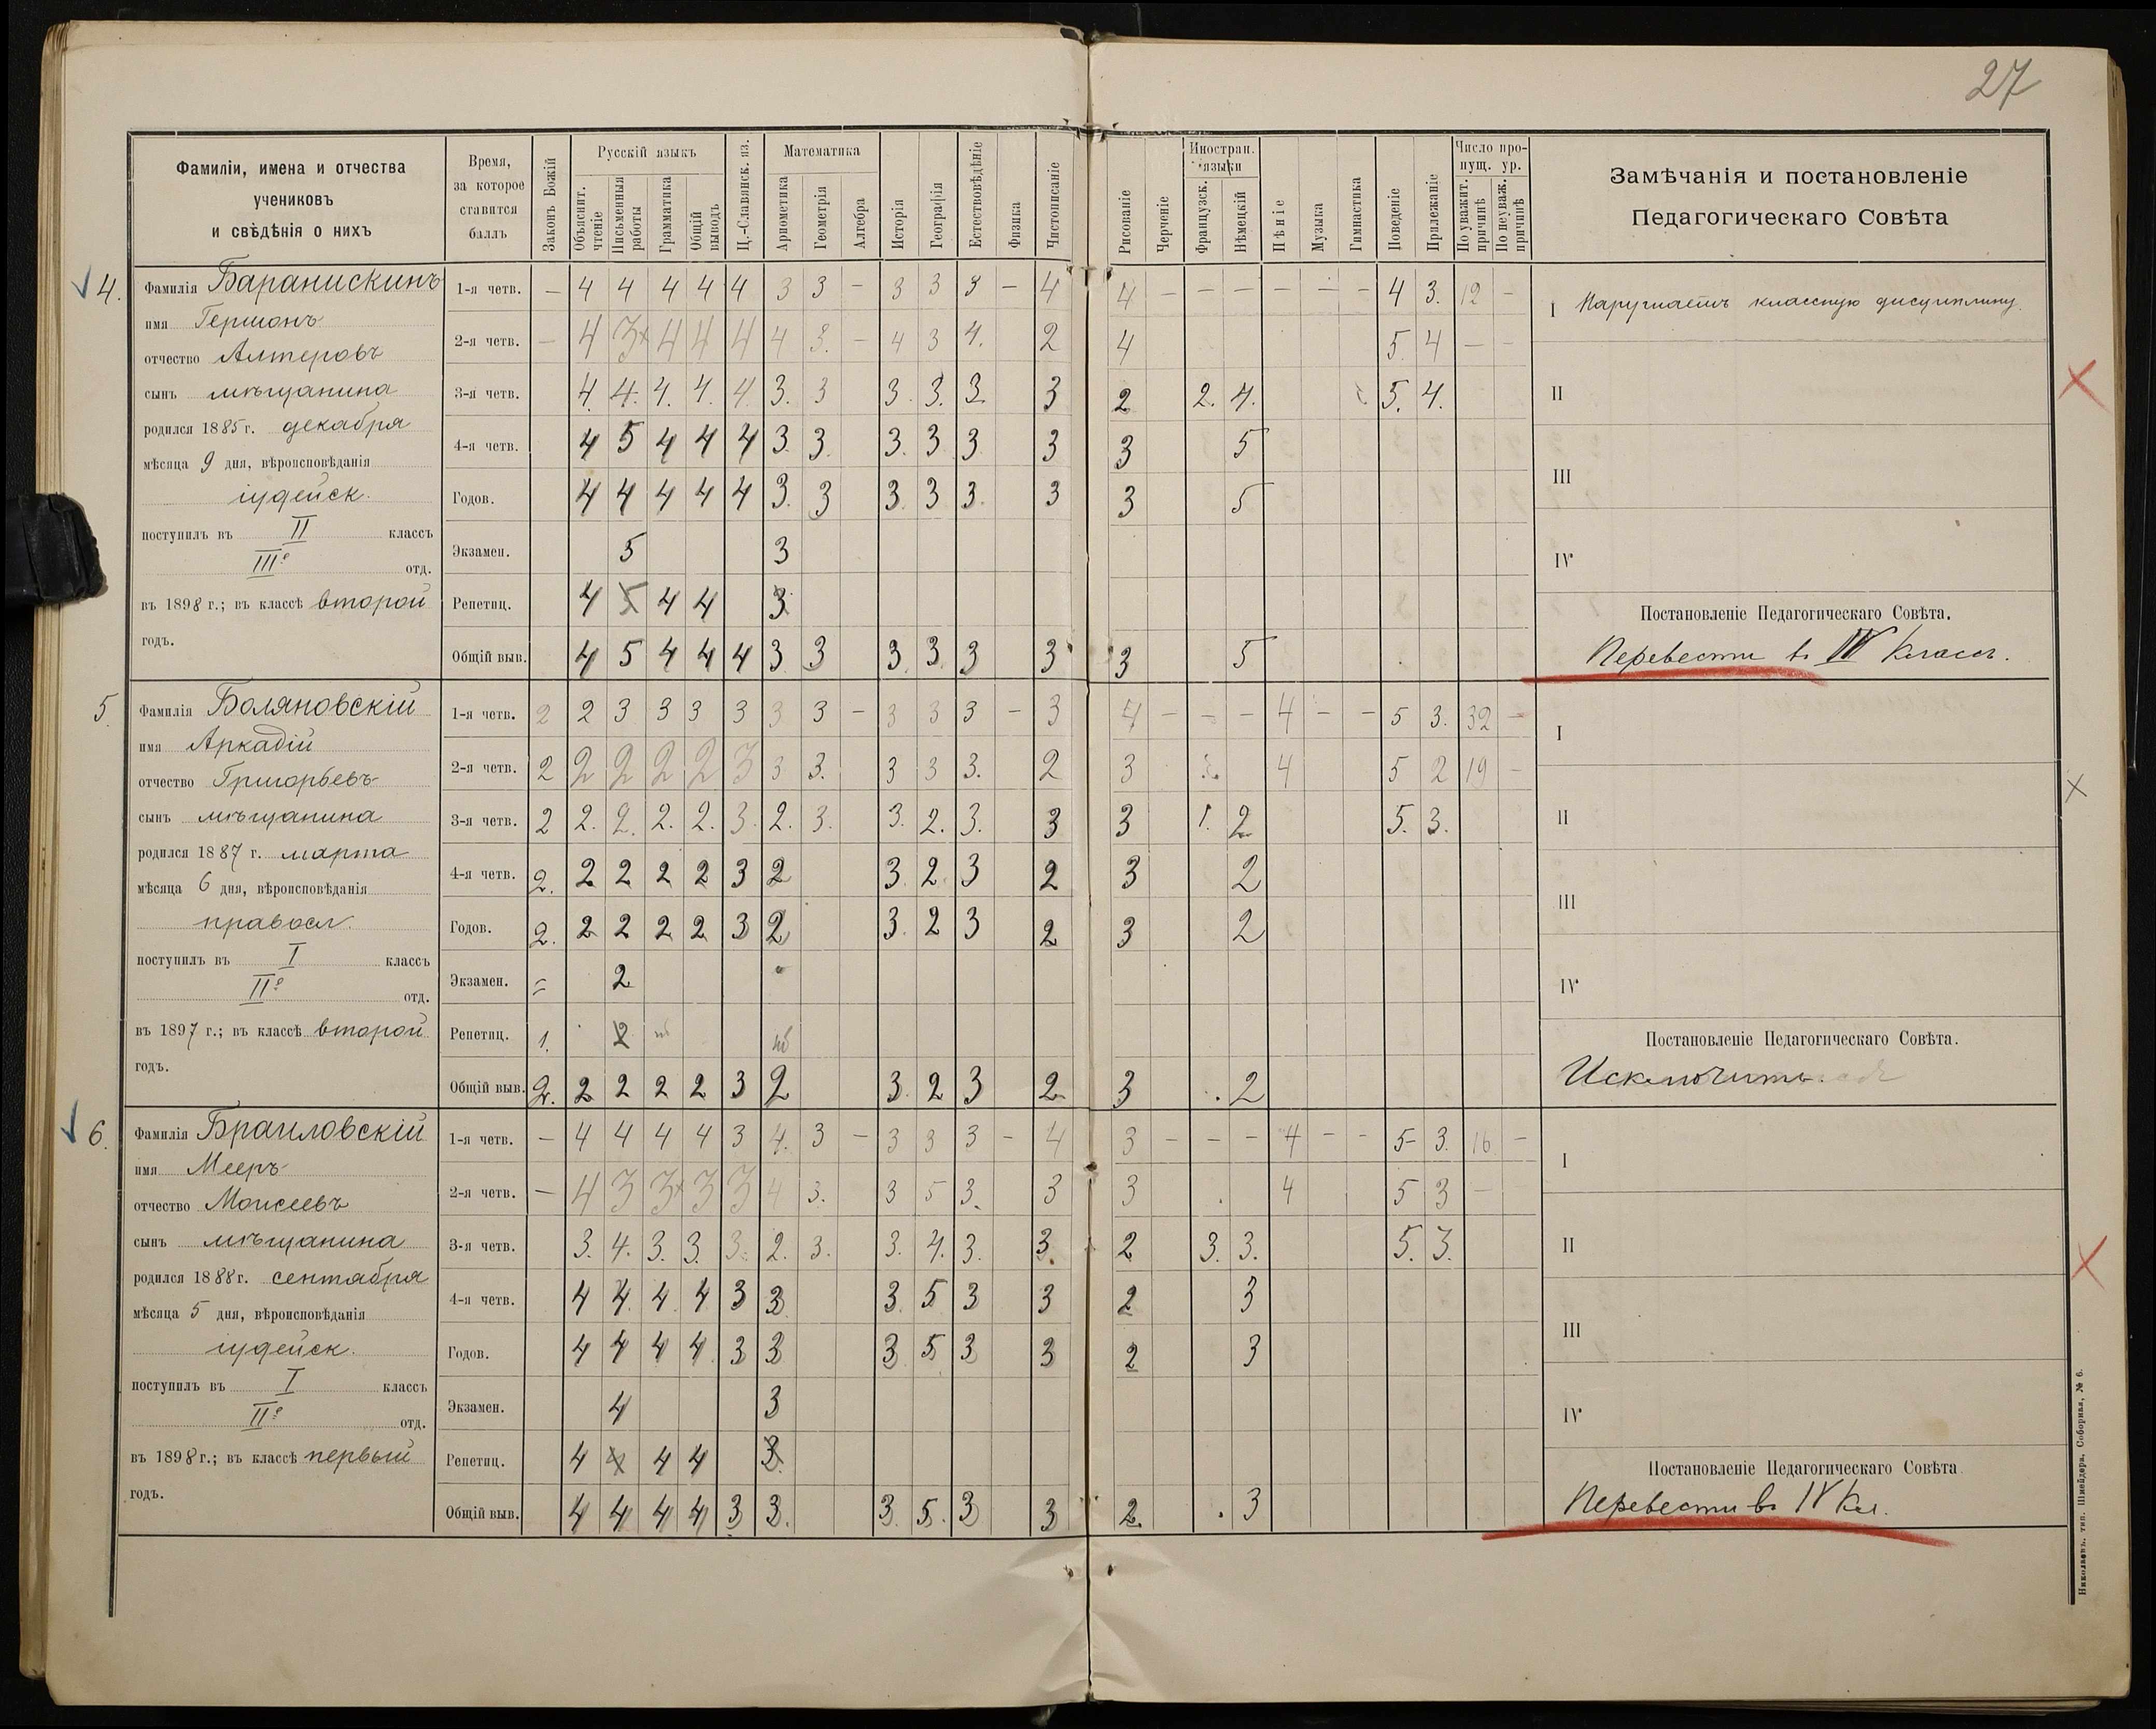 27
Фамиліи, имена и отчества
учениковъ
и свѣдѣнія о нихъ
Время,
за которое
ставится
баллъ
Законъ Божій
Русскій языкъ
Объяснит.
чтеніе
Письменныя
работы
Грамматика
Общій
выводъ
Ц.-Славянск. яз.
Математика
Ариѳметика
Геометрія
Алгебра
Исторія
Географія
Естествовѣдѣніе
Физика
Чистописаніе
Рисованіе
Черченіе
Иностран.
языки
Французск.
Нѣмецкій
Пѣніе
Музыка
Гимнастика
Поведеніе
Прилежаніе
Число про-
пущ. ур.
По уважит.
причинѣ
По неуваж.
причинѣ
Замѣчанія и постановленіе
Педагогическаго Совѣта
4.
Фамилія Баранискинъ
имя Гершонъ
отчество Алтеровъ
сынъ мѣщанина
родился 1885 г. декабря
мѣсяца 9 дня, вѣроисповѣданія
іудейск.
поступилъ въ II классъ
IIIе отд.
въ 1898 г.; въ классѣ второй
годъ.
1-я четв. — 4 4 4 4 4 3 3 — 3 3 3 — 4 4 — — — — — — 4 3. 12 —
2-я четв. — 4 3 4 4 4 4 3. — 4 3 4. 2 4 5. 4 — —
3-я четв. 4. 4. 4. 4. 4 3. 3 3. 3. 3. 3 2 2. 4. 5. 4.
4-я четв. 4 5 4 4 4 3. 3. 3. 3 3 3 3 5
Годов. 4 4 4 4 4 3. 3 3. 3 3. 3 3 5
Экзамен. 5 3
Репетиц. 4 5 4 4 3
Общій выв. 4 5 4 4 4 3 3 3. 3 3 3 3 5
I Нарушаетъ классную дисциплину.
II
III
IV
Постановленіе Педагогическаго Совѣта.
Перевести въ IV классъ.
5.
Фамилія Боляновскій
имя Аркадій
отчество Григорьевъ
сынъ мѣщанина
родился 1887 г. марта
мѣсяца 6 дня, вѣроисповѣданія
правосл.
поступилъ въ I классъ
IIе отд.
въ 1897 г.; въ классѣ второй
годъ.
1-я четв. 2 2 3 3 3 3 3 3 — 3 3 3 — 3 4 — — — 4 — — 5 3. 32 —
2-я четв. 2 2 2 2 2 3 3 3. 3 3 3. 2 3 4 5 2 19 —
3-я четв. 2 2. 2. 2. 2. 3. 2. 3. 3. 2. 3. 3 3 1. 2 5. 3.
4-я четв. 2. 2 2 2 2 3 2 3. 2. 3 2 3 2
Годов. 2. 2 2 2 2 3 2 3. 2 3 2 3 2
Экзамен. = 2
Репетиц. 1. 2
Общій выв. 2. 2 2 2 2 3 2 3. 2 3 2 3 2
I
II
III
IV
Постановленіе Педагогическаго Совѣта.
Исключить.
6.
Фамилія Браиловскій
имя Мееръ
отчество Моисеевъ
сынъ мѣщанина
родился 1888 г. сентября
мѣсяца 5 дня, вѣроисповѣданія
іудейск.
поступилъ въ I классъ
IIе отд.
въ 1898 г.; въ классѣ первый
годъ.
1-я четв. — 4 4 4 4 3 4. 3 — 3 3 3 — 4 3 — — — 4 — — 5 3. 16 —
2-я четв. — 4 3 3 3 3 4 3. 3 5 3. 3 3 4 5 3 —
3-я четв. 3. 4. 3. 3. 3. 2. 3. 3. 4. 3. 3. 2 3. 3. 5. 3.
4-я четв. 4 4. 4. 4 3 3 3. 5 3 3 2 3
Годов. 4 4 4 4 3 3 3 5 3 3 2 3
Экзамен. 4 3
Репетиц. 4 4 4 4 3
Общій выв. 4 4 4 4 3 3. 3. 5. 3 3 2. 3
I
II
III
IV
Постановленіе Педагогическаго Совѣта
Перевести въ IV кл.
Николаевъ. тип. Шнейдера, Соборная, № 6.